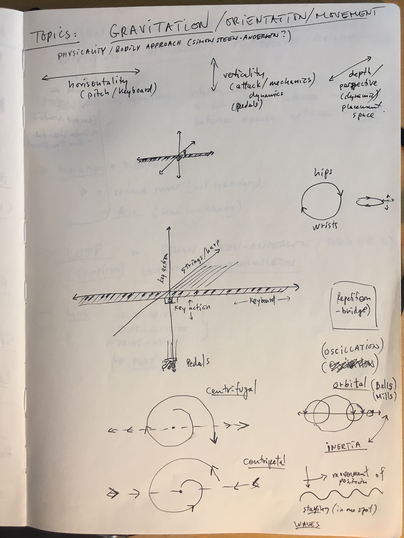 TOPICS: GRAVITATION/ORIENTATION/MOVEMENT
PHYSICALITY/BODILY APPROACH (SIMON STEEN-ANDERSEN?)
horisontality
(pitch/keyboard)
verticality
(attack/mechanics)
dynamics
(pedals)
depth/
perspective
(dynamics)/
placement
space
hips
wrists
key action
strings/harp
key action
keyboard
Pedals
Repetition
-bridge
(OSCILLATION)
orbital (Balls/
Mills)
INERTIA
Centrifugal
Centripetal
movement of
position
staying (in one spot)
WAVES